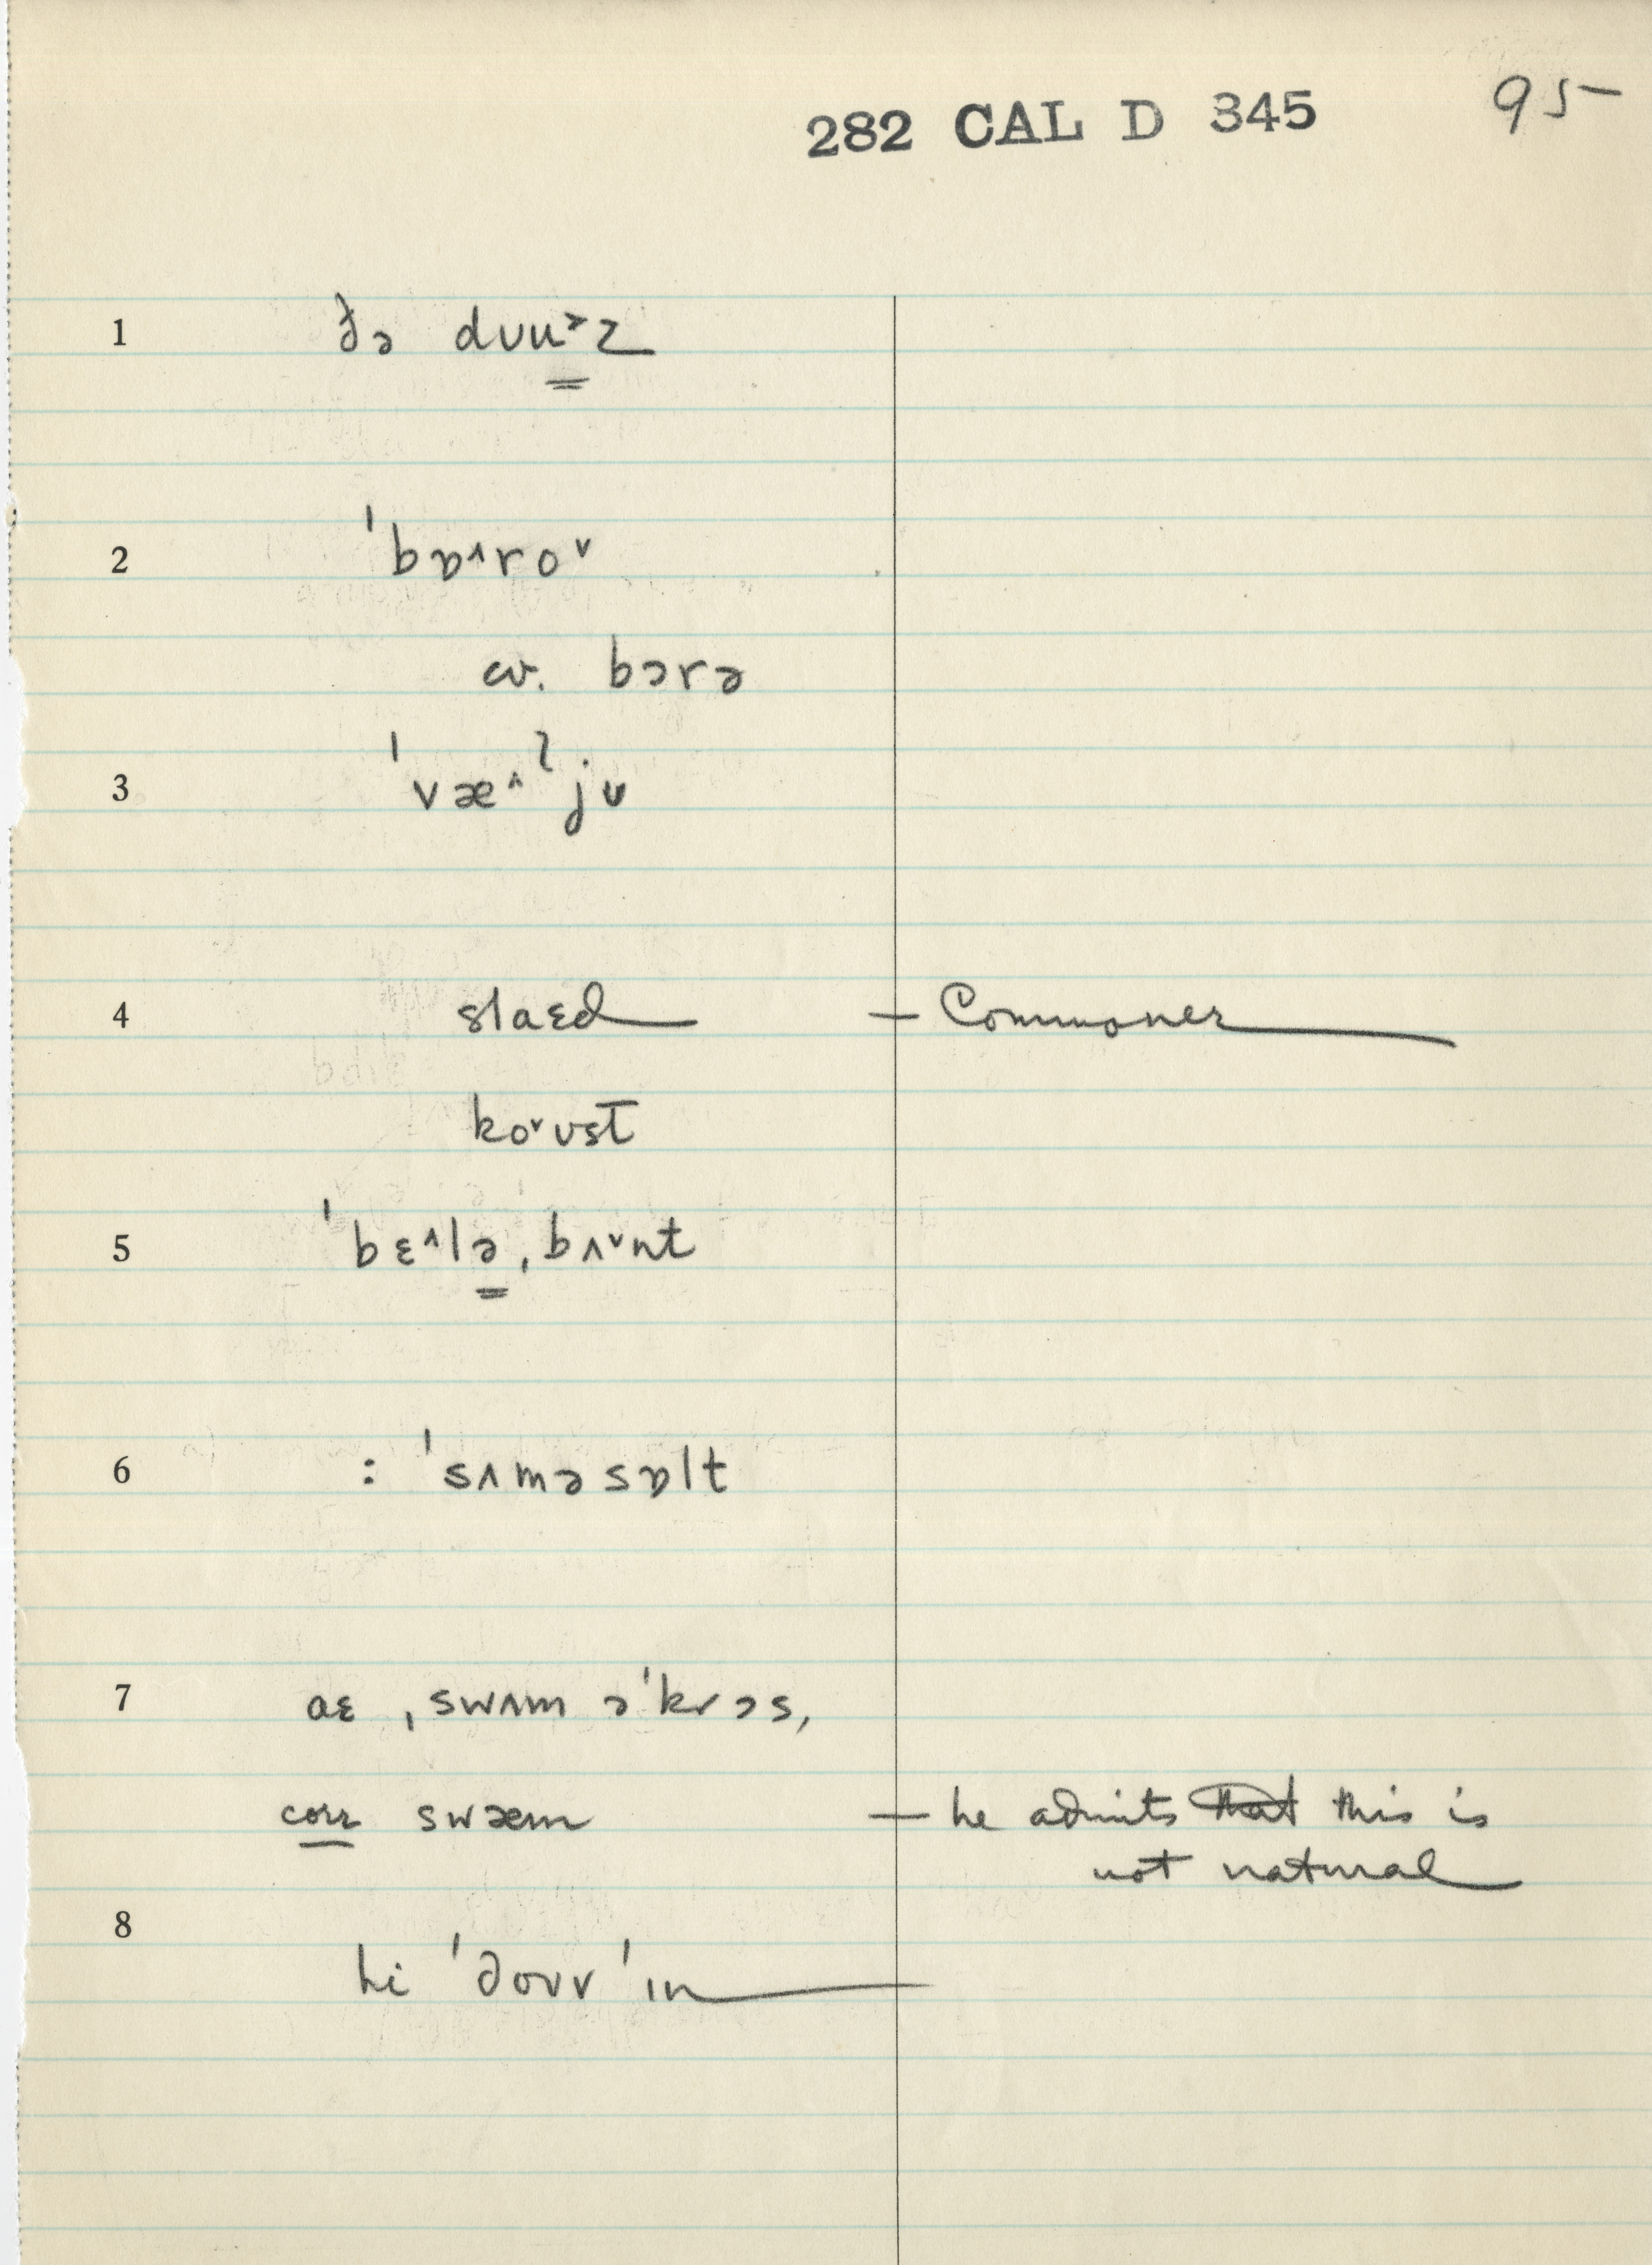 282 CAL D 345 95
1 ðə dʊu˃z
2 ˈbɒ˄ro˅
cv. bɔrə
3 ˈvæ˄ʔjʊ
4 slaɛd — Commoner
ko˅ʊst
5 ˈbɛ˄lə ˌbʌ˅nt
6 : ˈsʌməsɒlt
7 aɛ ˌswʌm əˈkrɔs,
corr swæm — he admits that this is
not natural
8 hi ˈdoʊv ˈɪn